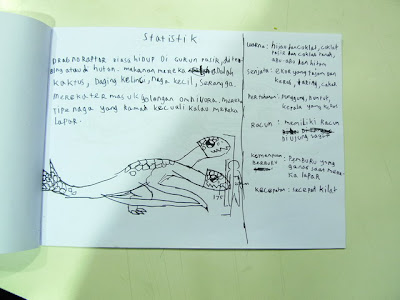 Statistik
DRAGNORAPTOR BIASA HIDUP DI GURUN PASIR,
ATAU DI HUTAN. MAKANAN MEREKA ADALAH
KAKTUS, DAGING KELINCI, NAGA KECIL, SERANGGA.
MEREKA TERMASUK GOLONGAN OMNIVORA.
TIPE NAGA YANG RAMAH KECUALI KALAU MEREKA
LAPAR.
175
WARNA: HIJAU DAN COKLAT, COKLAT
PASIR DAN COKLAT TANAH,
ABU-ABU DAN HITAM
SENJATA: EKOR YANG TAJAM DAN
TARING, CAKAR
PERTAHANAN: PUNGGUNG,
KEPALA YANG KERAS
RACUN: MEMILIKI RACUN
DI UJUNG
KEMAMPUAN BERBURU: PEMBURU YANG
GANAS SAAT MERE-
KA LAPAR
KECEPATAN: SECEPAT KILAT